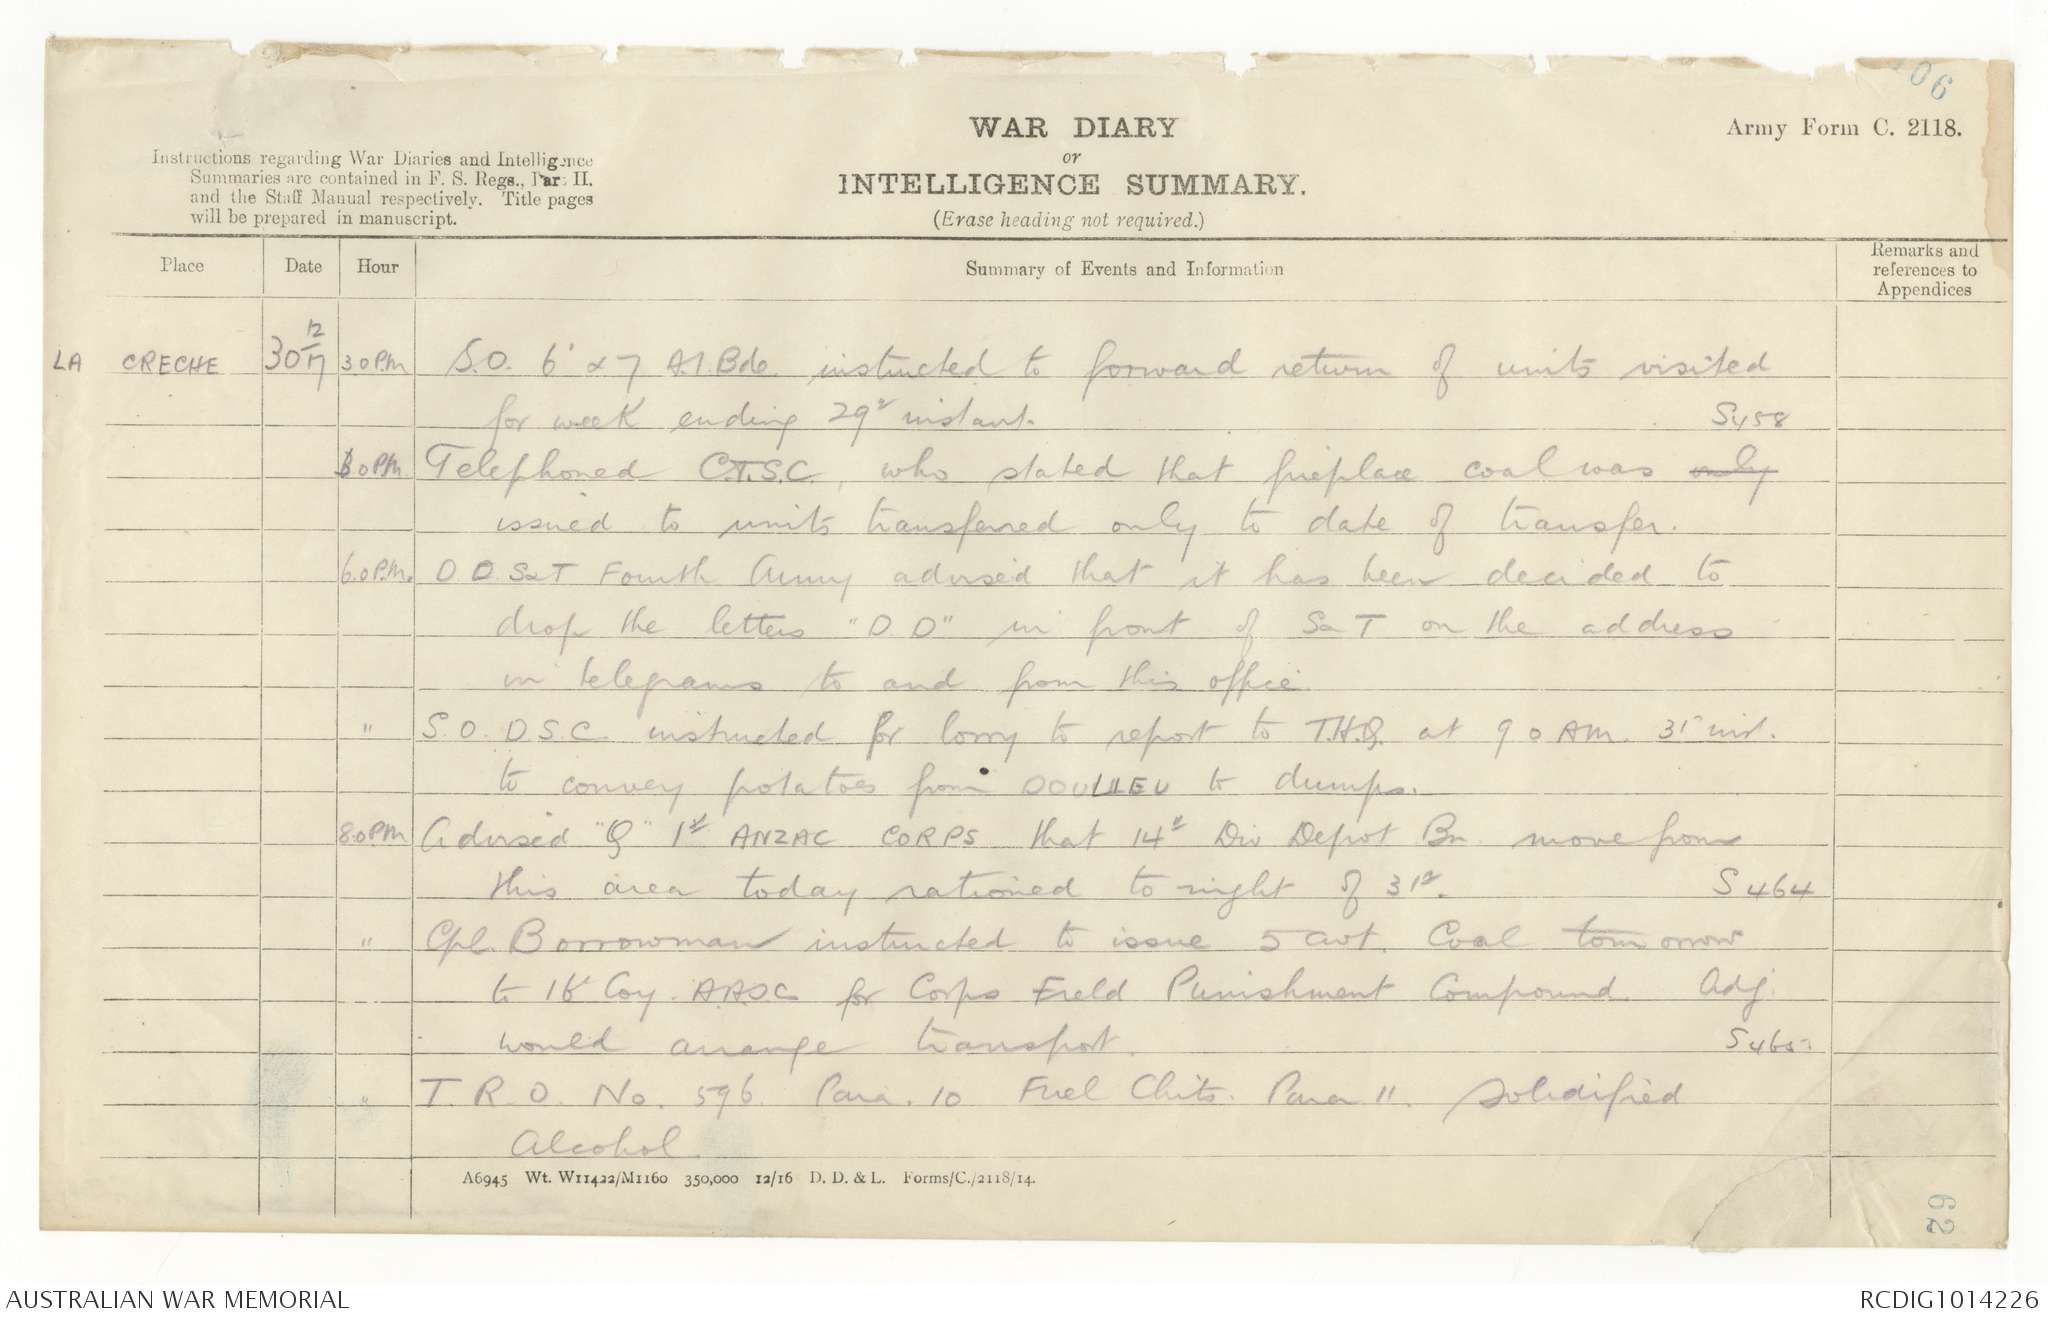 106
WAR DIARY
or
INTELLIGENCE SUMMARY.
(Erase heading not required.)
Army Form C. 2118.
Instructions regarding War Diaries and Intelligence
Summaries are contained in F. S. Regs., Part II.
and the Staff Manual respectively. Title pages
will be prepared in manuscript.
Place Date Hour Summary of Events and Information Remarks and references to Appendices
LA CRECHE 30 12/17 3.0 P.M S.O. 6' & 7 A.I.Bde. instructed to forward return of units visited
for week ending 29th instant. S458
0 P.M. Telephoned C.T.S.C., who stated that fireplace coal was only
issued to units transferred only to date of transfer.
6.0 P.M. D D S&T Fourth Army advised that it has been decided to
drop the letters "D.D" in front of S&T on the address
in telegrams to and from this office.
" S.O. D.S.C. instructed for lorry to report to T.H.Q. at 9 0 AM. 31st inst.
to convey potatoes from DOULIEU to dumps.
8.0 PM Advised "Q" 1st ANZAC CORPS that 14th Div Depot Bn. move from
this area today rationed to night of 31st. S 464
" Cpl. Borrowman instructed to issue 5 cwt. Coal tomorrow
to 16' Coy. AASC for Corps Field Punishment Compound. Adj.
would arrange transport. S465.
" T. R. O. No. 596. Para. 10 Fuel Chits. Para 11. Solidified
Alcohol.
A6945 Wt. W11422/M1160 350,000 12/16 D. D. & L. Forms/C./2118/14.
62
AUSTRALIAN WAR MEMORIAL
RCDIG1014226